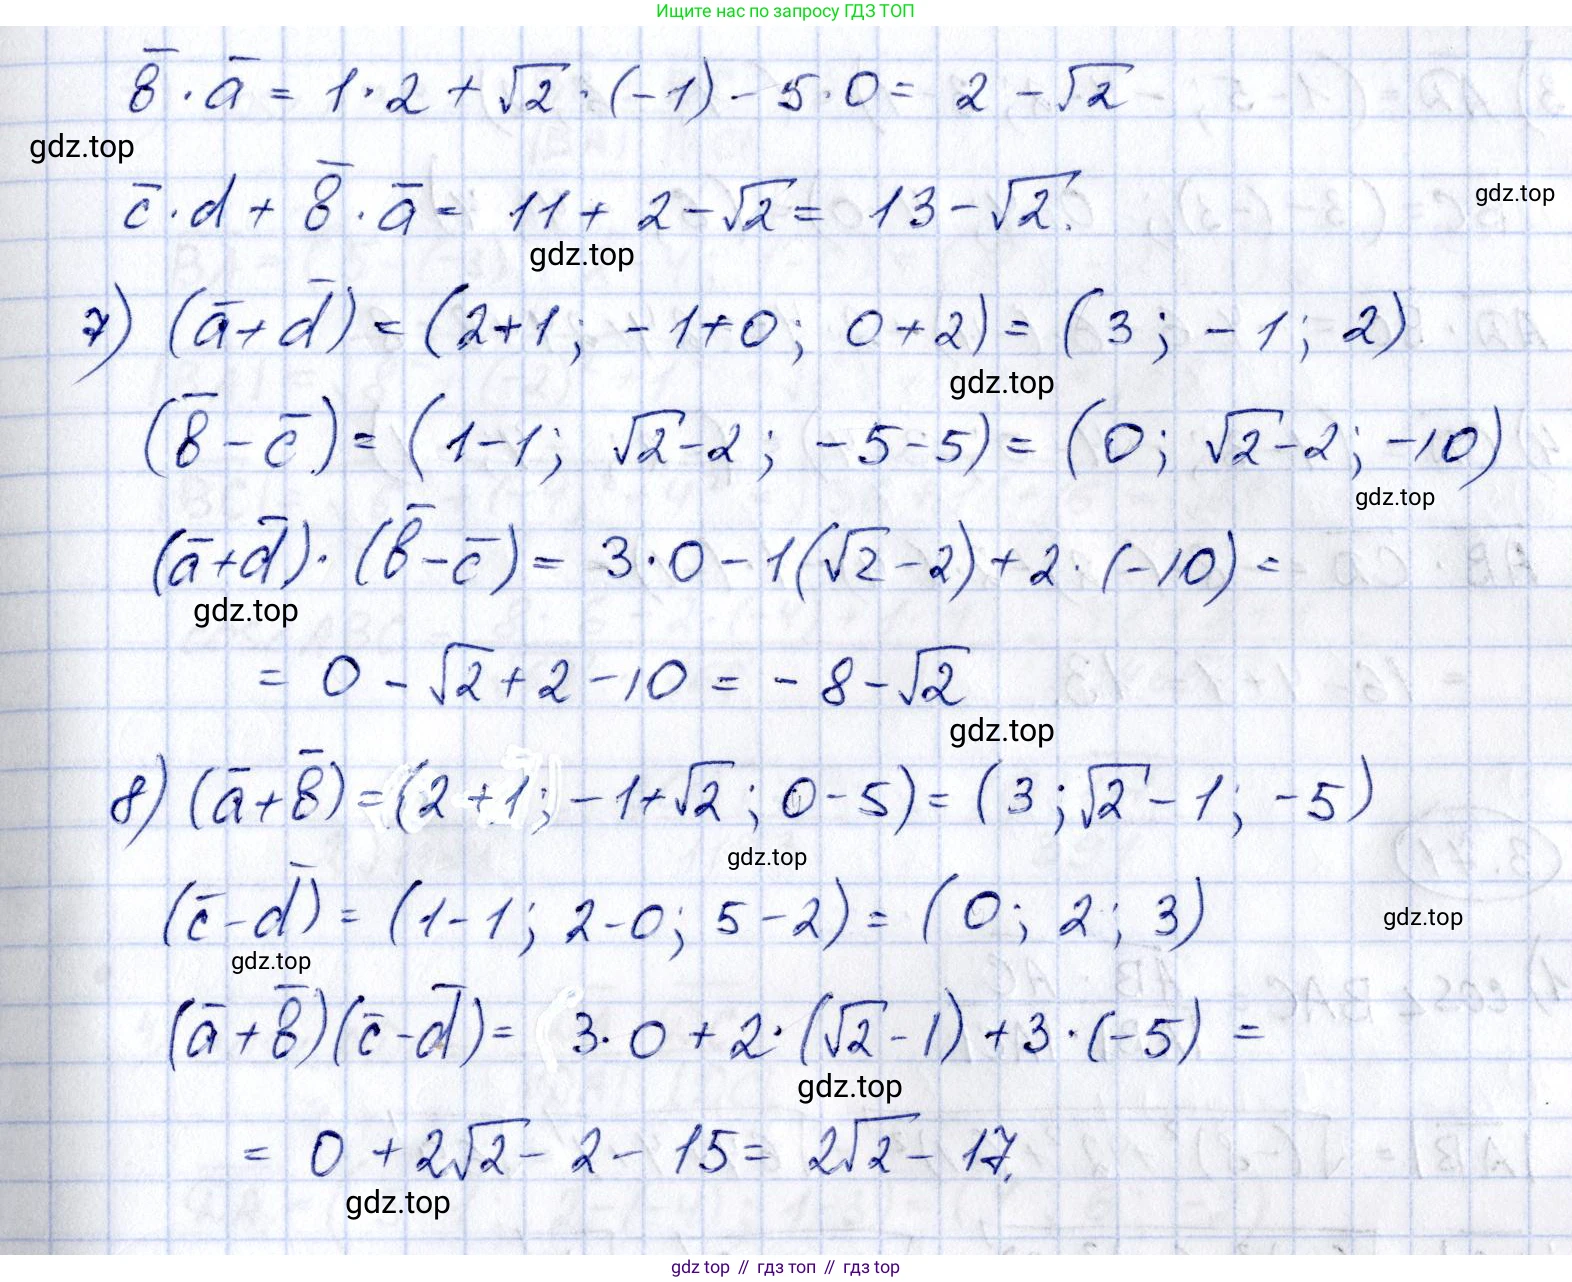 Ищите нас по запросу ГДЗ ТОП
b̄ · ā = 1·2 + √2 · (-1) - 5·0 = 2 - √2
gdz.top
c̄ · d + b̄ · ā = 11 + 2 - √2 = 13 - √2.
gdz.top
gdz.top
7) (ā + d̄) = (2+1; -1+0; 0+2) = (3; -1; 2)
gdz.top
(b̄ - c̄) = (1-1; √2-2; -5-5) = (0; √2-2; -10)
gdz.top
(ā+d̄) · (b̄-c̄) = 3·0 - 1(√2-2) + 2·(-10) =
gdz.top
= 0 - √2 + 2 - 10 = -8 - √2
gdz.top
8) (ā+b̄) = (2+1; -1+√2; 0-5) = (3; √2-1; -5)
gdz.top
(c̄-d̄) = (1-1; 2-0; 5-2) = (0; 2; 3)
gdz.top
gdz.top
(ā+b̄)(c̄-d̄) = 3·0 + 2·(√2-1) + 3·(-5) =
gdz.top
= 0 + 2√2 - 2 - 15 = 2√2 - 17.
gdz.top
gdz top // гдз топ // гдз top